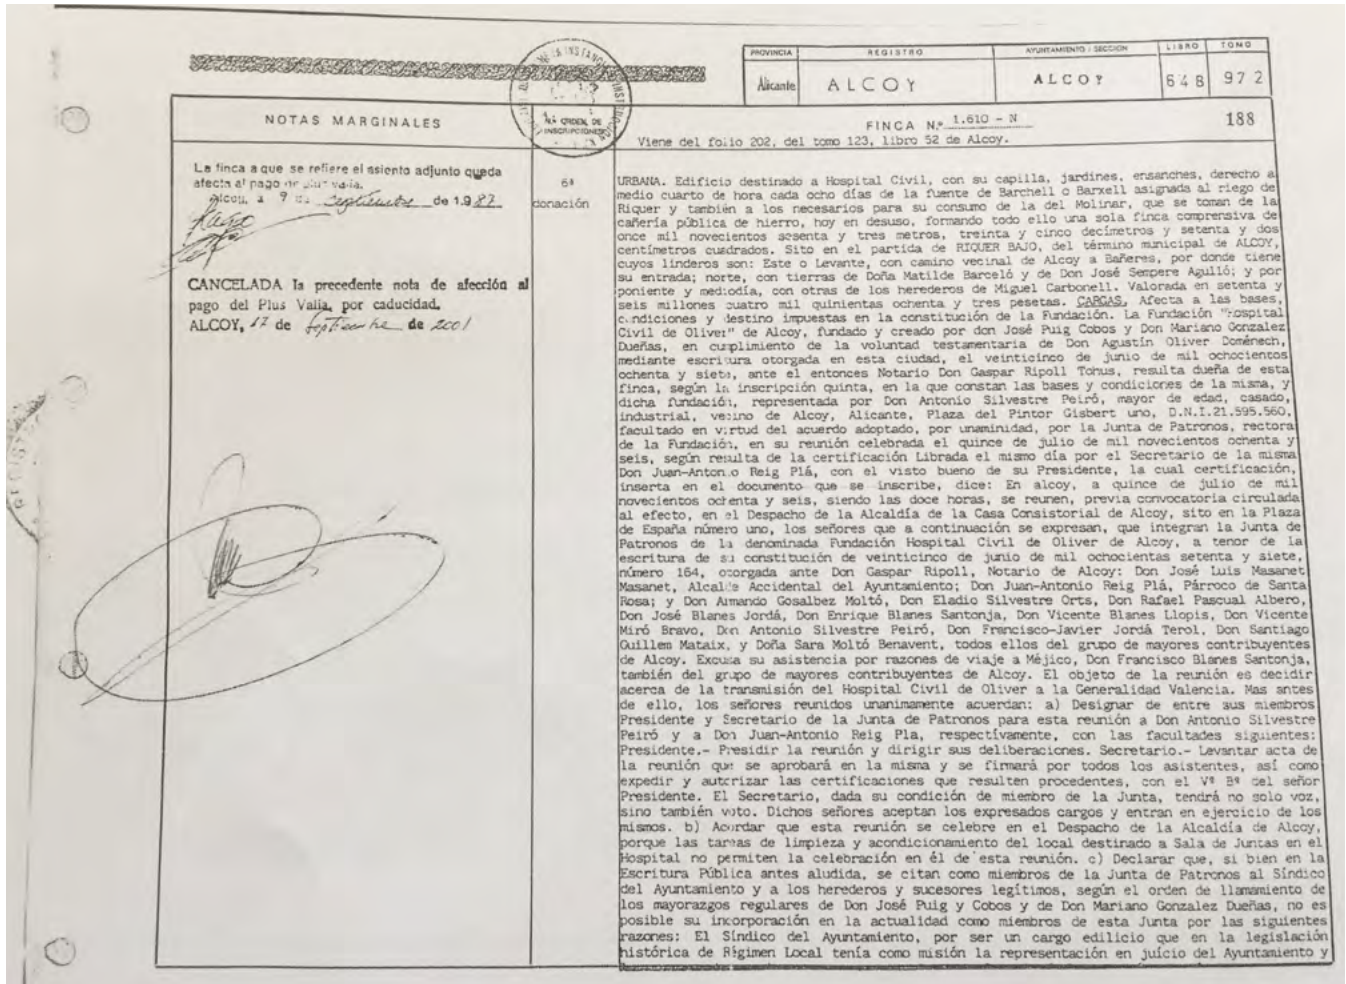 PROVINCIA
REGISTRO
AYUNTAMIENTO / SECCION
LIBRO
TOMO
Alicante
ALCOY
ALCOY
648
972
NOTAS MARGINALES
N.º ORDEN DE
INSCRIPCIONES
FINCA N.º 1.610 - N
188
Viene del folio 202, del tomo 123, libro 52 de Alcoy.
La finca a que se refiere el asiento adjunto queda
afecta al pago de plus valía.
Alcoy, a 9 de Septiembre de 1.987
CANCELADA la precedente nota de afección al
pago del Plus Valía, por caducidad.
ALCOY, 12 de Septiembre de 2001
6ª
donación
URBANA. Edificio destinado a Hospital Civil, con su capilla, jardines, ensanches, derecho a
medio cuarto de hora cada ocho días de la fuente de Barchell o Barxell asignada al riego de
Riquer y también a los necesarios para su consumo de la del Molinar, que se toman de la
cañería pública de hierro, hoy en desuso, formando todo ello una sola finca comprensiva de
once mil novecientos sesenta y tres metros, treinta y cinco decímetros y setenta y dos
centímetros cuadrados. Sito en el partida de RIQUER BAJO, del término municipal de ALCOY,
cuyos linderos son: Este o Levante, con camino vecinal de Alcoy a Bañeres, por donde tiene
su entrada; norte, con tierras de Doña Matilde Barceló y de Don José Sempere Agulló; y por
poniente y mediodía, con otras de los herederos de Miguel Carbonell. Valorada en setenta y
seis millones cuatro mil quinientas ochenta y tres pesetas. CARGAS. Afecta a las bases,
condiciones y destino impuestas en la constitución de la Fundación. La Fundación "Hospital
Civil de Oliver" de Alcoy, fundado y creado por don José Puig Cobos y Don Mariano Gonzalez
Dueñas, en cumplimiento de la voluntad testamentaria de Don Agustín Oliver Doménech,
mediante escritura otorgada en esta ciudad, el veinticinco de junio de mil ochocientos
ochenta y siete, ante el entonces Notario Don Gaspar Ripoll Tohus, resulta dueña de esta
finca, según la inscripción quinta, en la que constan las bases y condiciones de la misma, y
dicha fundación, representada por Don Antonio Silvestre Peiró, mayor de edad, casado,
industrial, vecino de Alcoy, Alicante, Plaza del Pintor Gisbert uno, D.N.I.21.595.560,
facultado en virtud del acuerdo adoptado, por unaminidad, por la Junta de Patronos, rectora
de la Fundación, en su reunión celebrada el quince de julio de mil novecientos ochenta y
seis, según resulta de la certificación Librada el mismo día por el Secretario de la misma
Don Juan-Antonio Reig Plá, con el visto bueno de su Presidente, la cual certificación,
inserta en el documento que se inscribe, dice: En alcoy, a quince de julio de mil
novecientos ochenta y seis, siendo las doce horas, se reunen, previa convocatoria circulada
al efecto, en el Despacho de la Alcaldía de la Casa Consistorial de Alcoy, sito en la Plaza
de España número uno, los señores que a continuación se expresan, que integran la Junta de
Patronos de la denominada Fundación Hospital Civil de Oliver de Alcoy, a tenor de la
escritura de su constitución de veinticinco de junio de mil ochocientas setenta y siete,
número 164, otorgada ante Don Gaspar Ripoll, Notario de Alcoy: Don José Luis Masanet
Masanet, Alcalde Accidental del Ayuntamiento; Don Juan-Antonio Reig Plá, Párroco de Santa
Rosa; y Don Armando Gosalbez Moltó, Don Eladio Silvestre Orts, Don Rafael Pascual Albero,
Don José Blanes Jordá, Don Enrique Blanes Santonja, Don Vicente Blanes Llopis, Don Vicente
Miró Bravo, Don Antonio Silvestre Peiró, Don Francisco-Javier Jordá Terol, Don Santiago
Guillem Mataix, y Doña Sara Moltó Benavent, todos ellos del grupo de mayores contribuyentes
de Alcoy. Excusa su asistencia por razones de viaje a Méjico, Don Francisco Blanes Santonja,
también del grupo de mayores contribuyentes de Alcoy. El objeto de la reunión es decidir
acerca de la transmisión del Hospital Civil de Oliver a la Generalidad Valencia. Mas antes
de ello, los señores reunidos unanimamente acuerdan: a) Designar de entre sus miembros
Presidente y Secretario de la Junta de Patronos para esta reunión a Don Antonio Silvestre
Peiró y a Don Juan-Antonio Reig Pla, respectívamente, con las facultades siguientes:
Presidente.- Presidir la reunión y dirigir sus deliberaciones. Secretario.- Levantar acta de
la reunión que se aprobará en la misma y se firmará por todos los asistentes, así como
expedir y autorizar las certificaciones que resulten procedentes, con el Vº Bº del señor
Presidente. El Secretario, dada su condición de miembro de la Junta, tendrá no solo voz,
sino también voto. Dichos señores aceptan los expresados cargos y entran en ejercicio de los
mismos. b) Acordar que esta reunión se celebre en el Despacho de la Alcaldía de Alcoy,
porque las tareas de limpieza y acondicionamiento del local destinado a Sala de Juntas en el
Hospital no permiten la celebración en él de esta reunión. c) Declarar que, si bien en la
Escritura Pública antes aludida, se citan como miembros de la Junta de Patronos al Síndico
del Ayuntamiento y a los herederos y sucesores legítimos, según el orden de llamamiento de
los mayorazgos regulares de Don José Puig y Cobos y de Don Mariano Gonzalez Dueñas, no es
posible su incorporación en la actualidad como miembros de esta Junta por las siguientes
razones: El Síndico del Ayuntamiento, por ser un cargo edilicio que en la legislación
histórica de Régimen Local tenía como misión la representación en juício del Ayuntamiento y